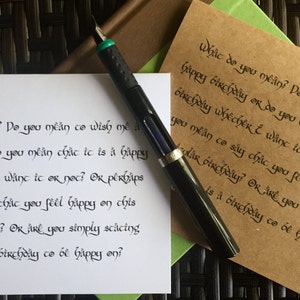 ? Do you mean to wish me a
you mean that it is a happy
want it or not? Or perhaps
that you feel happy on this
? Or are you simply stating
birthday to be happy on?
What do you mean? Do
happy birthday or do you
birthday whether I want it
you mean to say that you feel
birthday? Or are you
is a birthday to be